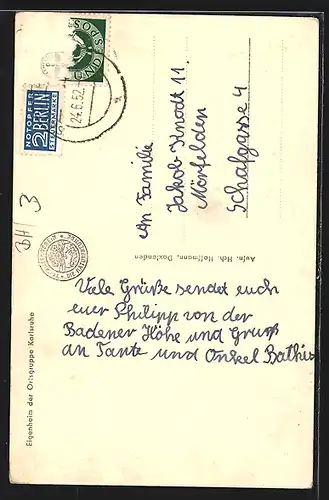 24.6.52
NOTOPFER
2 BERLIN
STEUERMARKE
An Familie
Jakob Knodt 11.
Mörfelden
Schafgasse 4
Aufn. Hch. Hoffmann, Daxlanden
BH/ 3
Viele Grüße sendet euch
euer Philipp von der
Badener Höhe und Gruß
an Tante und Onkel Bathis
Eigenheim der Ortsgruppe Karlsruhe